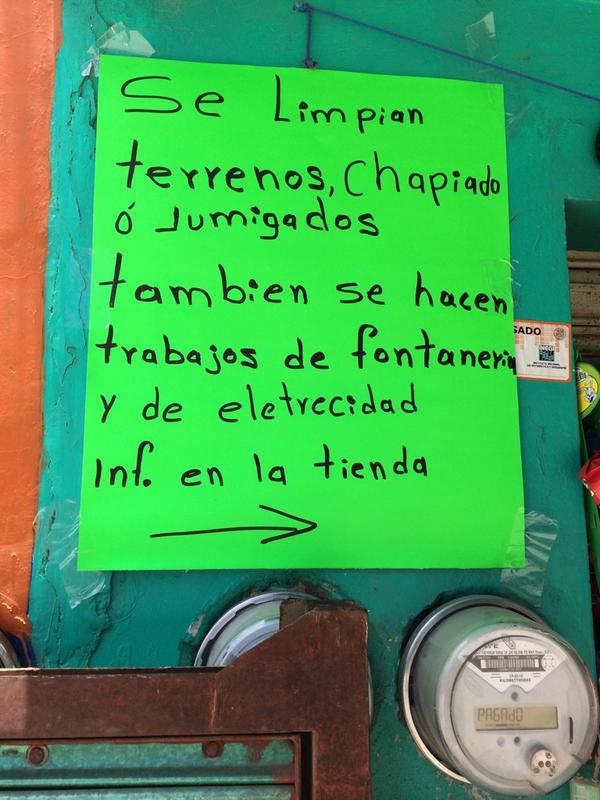 Se Limpian
terrenos, Chapiado
ó Jumigados
tambien se hacen
trabajos de fontaneria
y de eletrecidad
Inf. en la tienda
SADO
KILOWATTHORAS
PAGADO